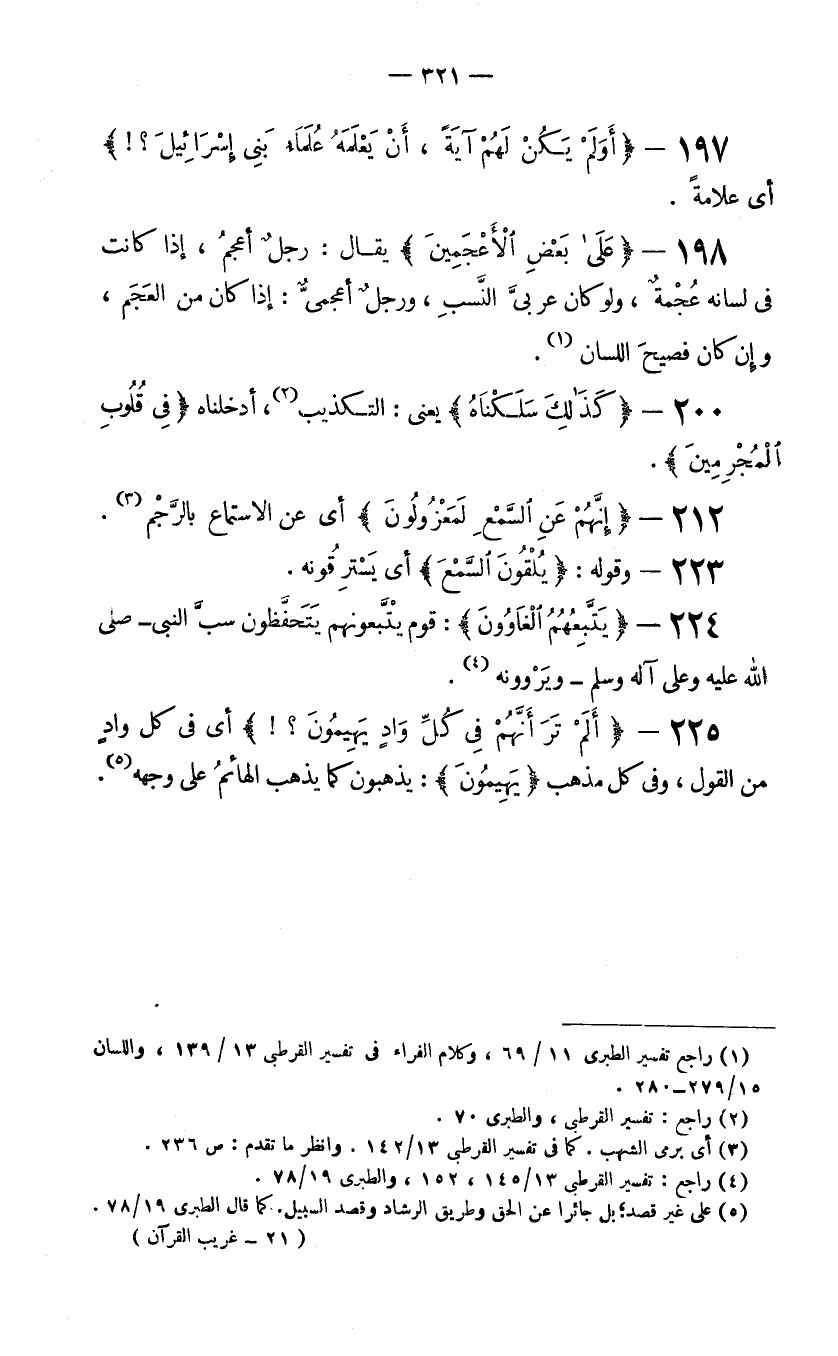 — ٣٢١ —
١٩٧ — ﴿ أَوَلَمْ يَكُنْ لَهُمْ آيَةً ، أَنْ يَعْلَمَهُ عُلَمَاءُ بَنِى إِسْرَائِيلَ ؟ ! ﴾
أى علامةً .
١٩٨ — ﴿ عَلَىٰ بَعْضِ ٱلْأَعْجَمِينَ ﴾ يقـال : رجلٌ أعجمُ ، إذا كانت
فى لسانه عُجْمةٌ ، ولو كان عربىَّ النَّسبِ ، ورجلٌ أعجمىٌّ : إذا كان من العَجَم ،
وإن كان فصيحَ اللسان (١) .
٢٠٠ — ﴿ كَذَٰلِكَ سَلَـكْنَاهُ ﴾ يعنى : التـكذيب (٢) ، أدخلناه ﴿ فِى قُلُوبِ
ٱلْمُجْرِمِينَ ﴾ .
٢١٢ — ﴿ إِنَّهُمْ عَنِ ٱلسَّمْعِ لَمَعْزُولُونَ ﴾ أى عن الاستماع بالرَّجْم (٣) .
٢٢٣ — وقوله : ﴿ يُلْقُونَ ٱلسَّمْعَ ﴾ أى يَسْترِقُونه .
٢٢٤ — ﴿ يَتَّبِعُهُمُ ٱلْغَاوُونَ ﴾ : قوم يتَّبعونهم يَتَحَفَّظون سبَّ النبى ـ صلى
الله عليه وعلى آله وسلم ـ ويَرْوونه (٤) .
٢٢٥ — ﴿ أَلَمْ تَرَ أَنَّهُمْ فِى كُلِّ وَادٍ يَهِيمُونَ ؟ ! ﴾ أى فى كل وادٍ
من القول ، وفى كل مذهب ﴿ يَهِيمُونَ ﴾ : يذهبون كما يذهب الهائمُ على وجهه (٥) .
(١) راجع تفسير الطبرى ١١ / ٦٩ ، وكلام الفراء فى تفسير القرطبى ١٣ / ١٣٩ ، واللسان
١٥/٢٧٩ــ٢٨٠ .
(٢) راجع : تفسير القرطبى ، والطبرى ٧٠ .
(٣) أى يرمى الشهب . كما فى تفسير القرطبى ١٣/١٤٢ . وانظر ما تقدم : ص ٢٣٦ .
(٤) راجع : تفسير القرطبى ١٣/١٤٥ ، ١٥٢ ، والطبرى ١٩/٧٨ .
(٥) على غير قصد؛ بل جائرا عن الحق وطريق الرشاد وقصد السبيل. كما قال الطبرى ١٩/٧٨ .
( ٢١ ـ غريب القرآن )